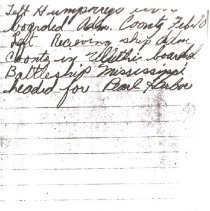 Left Humphreys
boarded Adm. Coontz Feb 10
Left Recieving ship Adm
Coontz in boarded
Battleship Mississippi
headed for Pearl Harbor